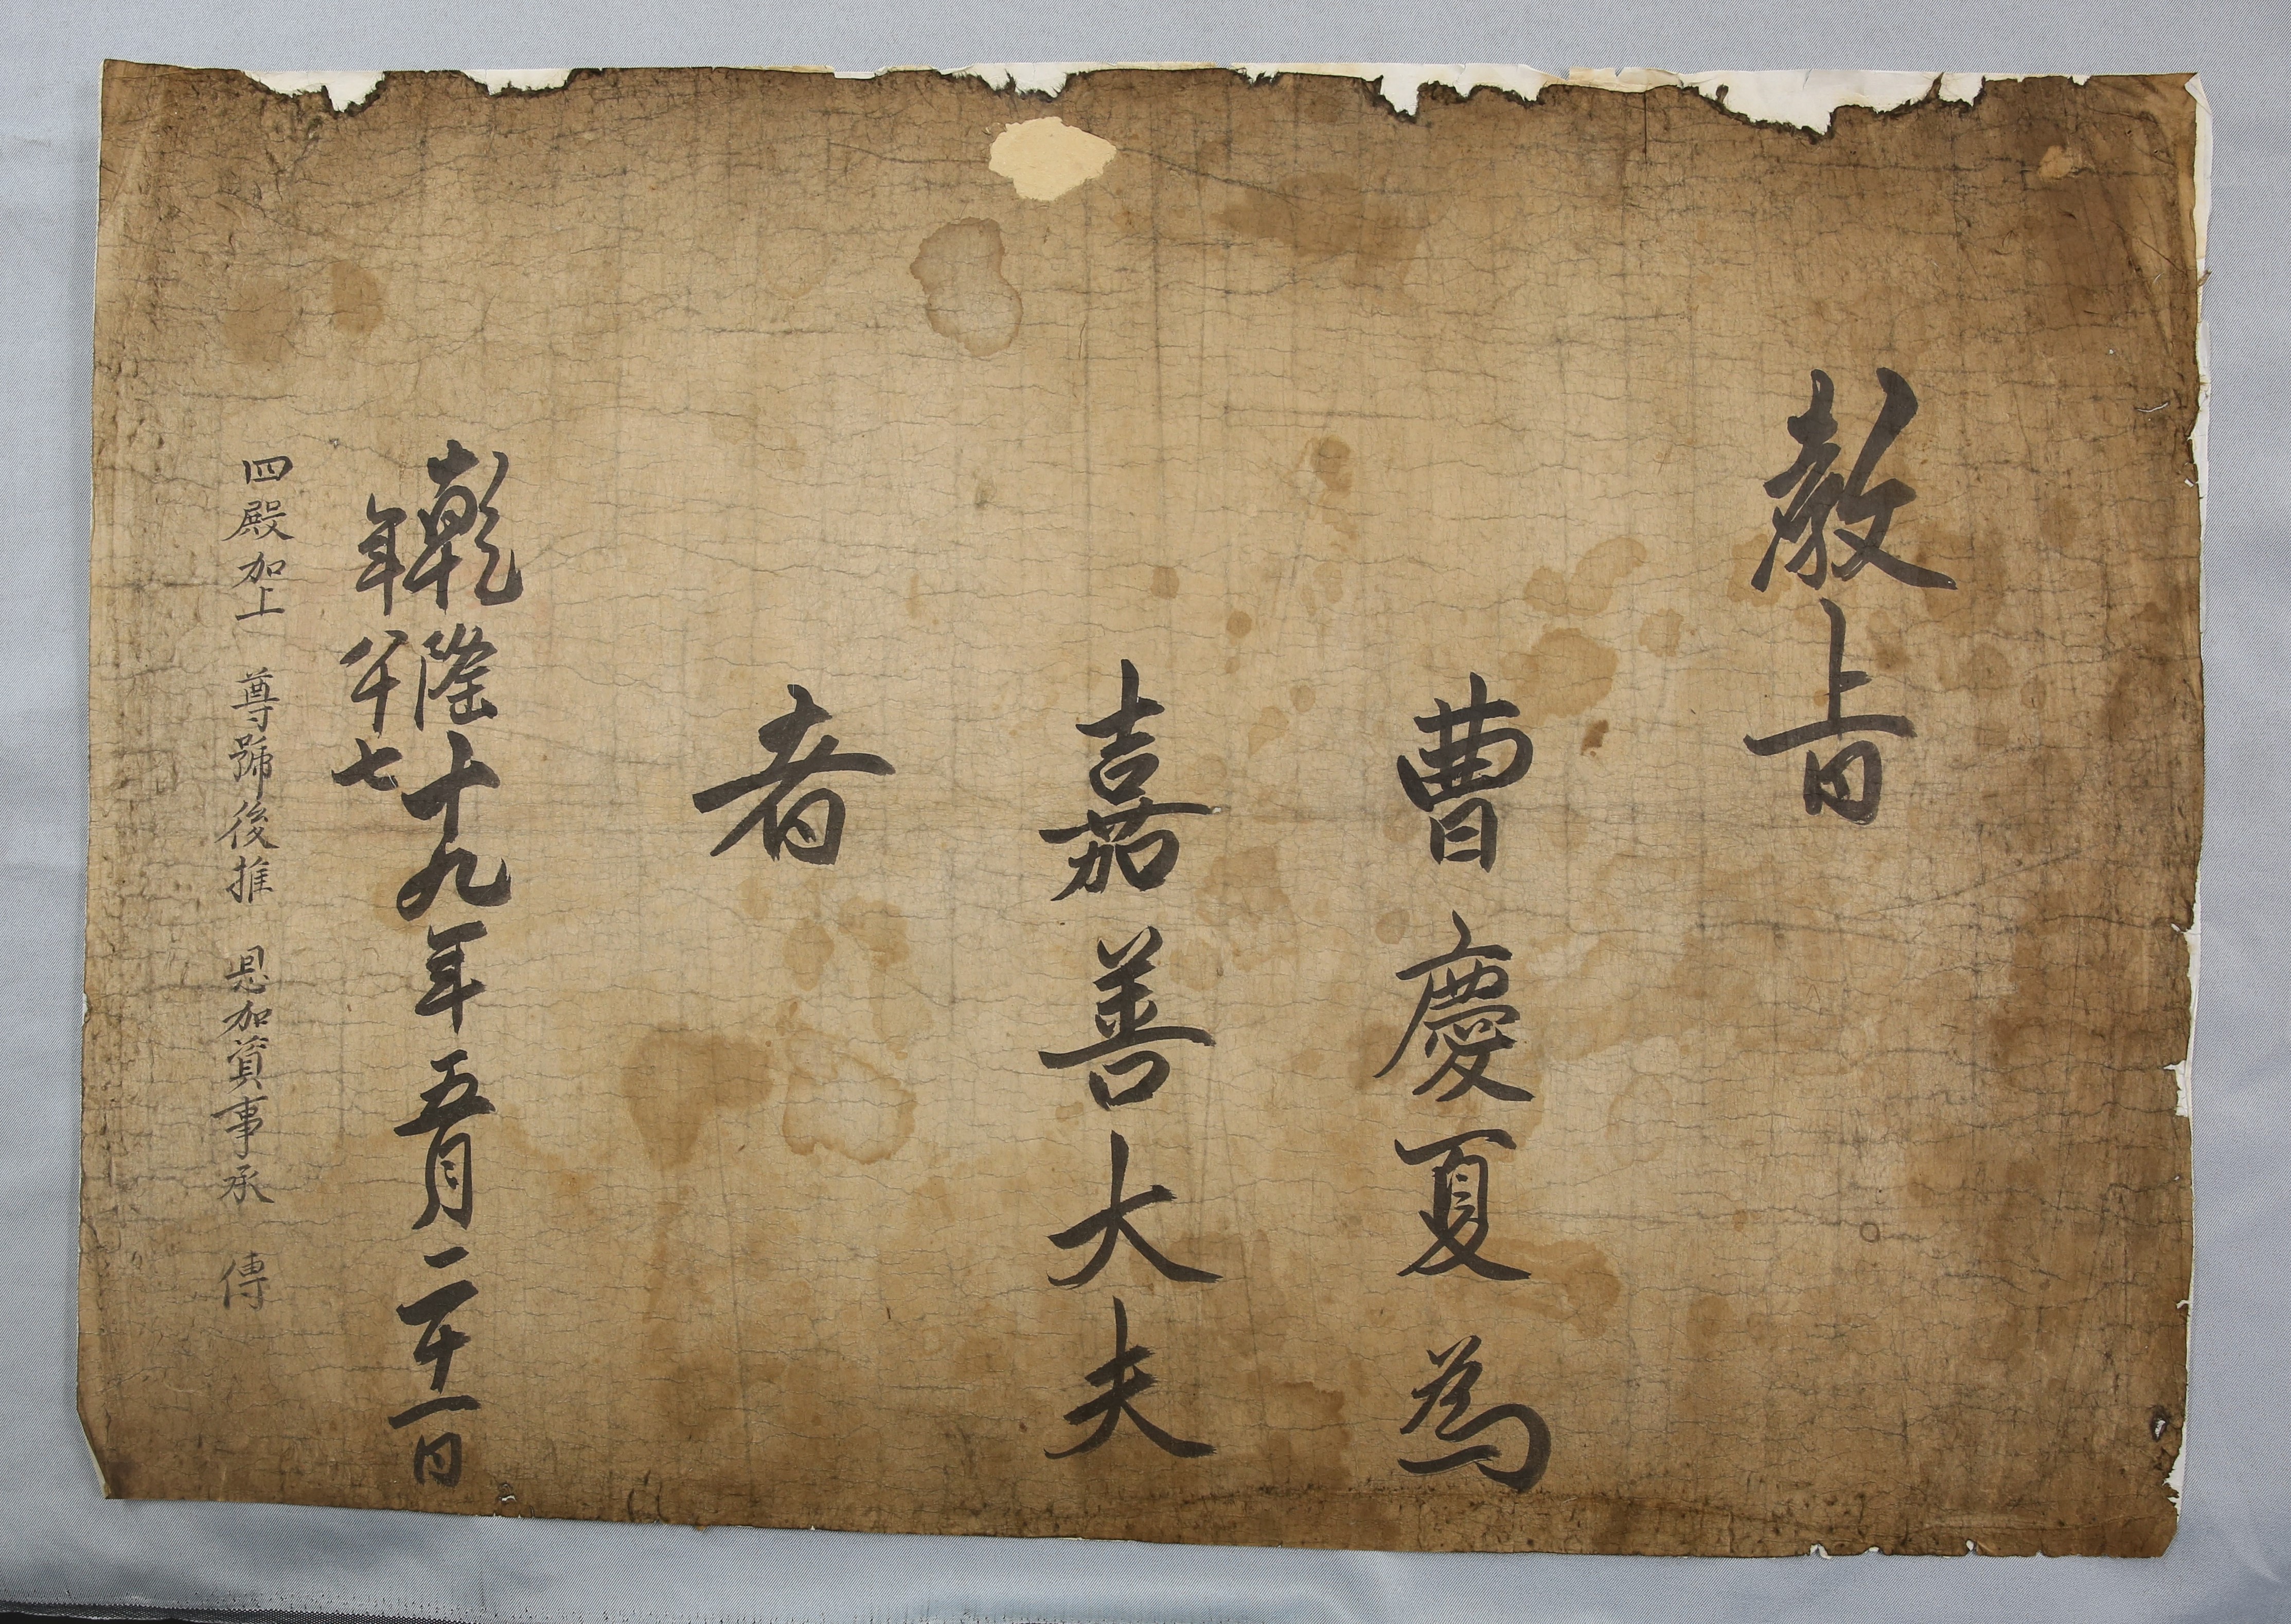 教旨
曹慶夏為
嘉善大夫
者
乾隆十九年五月二十一日
年八十七
四殿加上 尊號後推 恩加資事承 傳